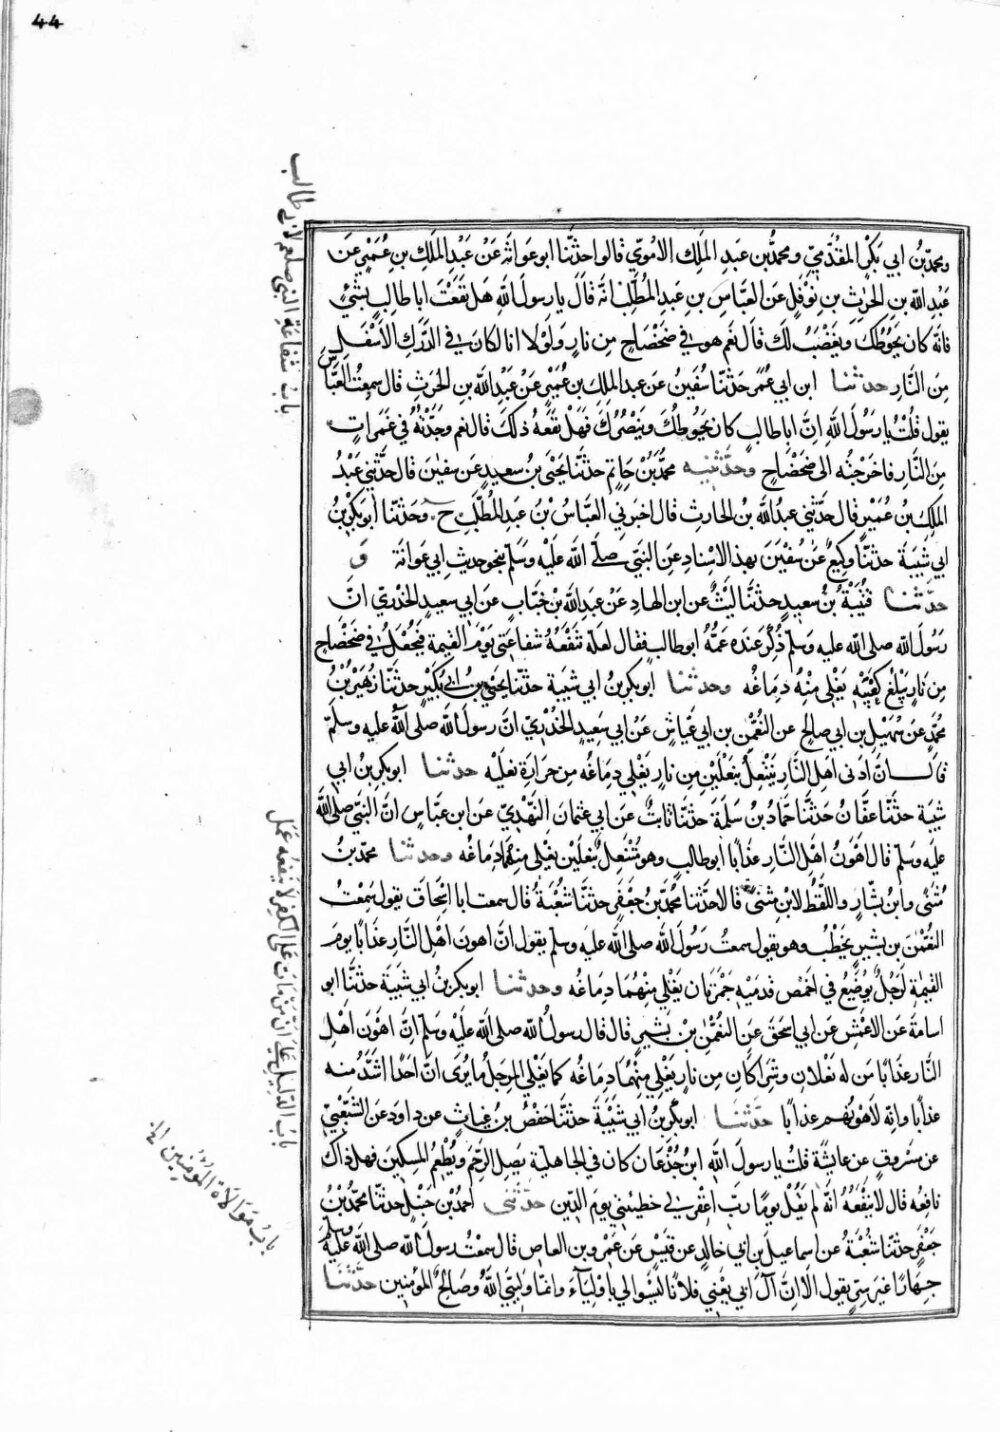 ٤٤
باب شفاعة النبي صلعم لابي طالب
ومحمد بن ابي بكر المقدمي ومحمد بن عبد الملك الاموي قالوا حدثنا ابو عوانة عن عبد الملك بن عمير عن
عبد الله بن الحرث بن نوفل عن العباس بن عبد المطلب انه قال يا رسول الله هل نفعت ابا طالب بشئ
فانه كان يحوطك ويغضب لك قال نعم هو في ضحضاح من نار ولولا انا لكان في الدرك الاسفل
من النار حدثنا ابن ابي عمر حدثنا سفين عن عبد الملك بن عمير عن عبد الله بن الحرث قال سمعت العباس
يقول قلت يا رسول الله ان ابا طالب كان يحوطك وينصرك فهل نفعه ذلك قال نعم وجدته في غمرات
من النار فاخرجته الى ضحضاح وحدثنيه محمد بن حاتم حدثنا يحيى بن سعيد عن سفين قال حدثني عبد
الملك بن عمير قال حدثني عبد الله بن الحارث قال اخبرني العباس بن عبد المطلب ح وحدثنا ابو بكر بن
ابي شيبة حدثنا وكيع عن سفين بهذا الاسناد عن النبي صلى الله عليه وسلم بنحو حديث ابي عوانة و
حدثنا قتيبة بن سعيد حدثنا ليث عن ابن الهاد عن عبد الله بن خباب عن ابي سعيد الخدري ان
رسول الله صلى الله عليه وسلم ذكر عنده عمه ابو طالب فقال لعله تنفعه شفاعتي يوم القيمة فيجعل في ضحضاح
من نار يبلغ كعبيه يغلي منه دماغه وحدثنا ابو بكر بن ابي شيبة حدثنا يحيى بن ابي بكير حدثنا زهير بن
محمد عن سهيل بن ابي صالح عن النعمن بن ابي عياش عن ابي سعيد الخدري ان رسول الله صلى الله عليه وسلم
قال ان ادنى اهل النار ينتعل بنعلين من نار يغلي دماغه من حرارة نعليه حدثنا ابو بكر بن ابي
شيبة حدثنا عفان حدثنا حماد بن سلمة حدثنا ثابت عن ابي عثمان النهدي عن ابن عباس ان النبي صلى الله
عليه وسلم قال اهون اهل النار عذابا ابو طالب وهو منتعل بنعلين يغلي منهما دماغه وحدثنا محمد بن
مثنى وابن بشار واللفظ لابن مثنى قالا حدثنا محمد بن جعفر حدثنا شعبة قال سمعت ابا اسحاق يقول سمعت
النعمن بن بشير يخطب وهو يقول سمعت رسول الله صلى الله عليه وسلم يقول ان اهون اهل النار عذابا يوم
القيمة لرجل يوضع في اخمص قدميه جمرتان يغلي منهما دماغه وحدثنا ابو بكر بن ابي شيبة حدثنا ابو
اسامة عن الاعمش عن ابي اسحق عن النعمن بن بشير قال قال رسول الله صلى الله عليه وسلم ان اهون اهل
النار عذابا من له نعلان وشراكان من نار يغلي منهما دماغه كما يغلي المرجل ما يرى ان احدا اشد منه
عذابا وانه لاهونهم عذابا حدثنا ابو بكر بن ابي شيبة حدثنا حفص بن غياث عن داود عن الشعبي
عن مسروق عن عايشة قلت يا رسول الله ابن جدعان كان في الجاهلية يصل الرحم ويطعم المسكين فهل ذاك
نافعه قال لا ينفعه انه لم يقل يوما رب اغفر لي خطيئتي يوم الدين حدثني احمد بن حنبل حدثنا محمد بن
جعفر حدثنا شعبة عن اسماعيل بن ابي خالد عن قيس عن عمرو بن العاص قال سمعت رسول الله صلى الله عليه وسلم
جهارا غير سر يقول الا ان آل ابي يعني فلانا ليسوا لي باولياء وانما وليي الله وصالح المؤمنين حدثنا
باب الدليل على ان من مات على الكفر لا ينفعه عمل
باب موالاة المؤمنين